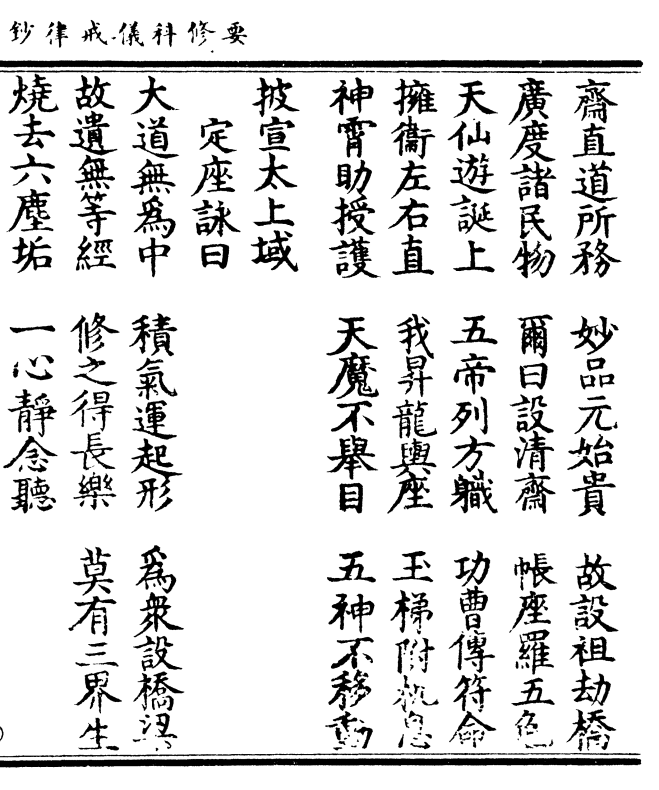 要修科儀戒律鈔
齋直道所務　妙品元始貴　故設祖劫橋
廣度諸民物　爾曰設清齋　帳座羅五色
天仙遊誕上　五帝列方職　功曹傳符命
擁衞左右直　我昇龍輿座　玉梯附机息
神霄助授護　天魔不舉目　五神不移動
披宣太上域
定座詠曰
大道無爲中　積氣運起形　爲衆設橋梁
故遺無等經　修之得長樂　莫有三界生
燒去六塵垢　一心靜念聽